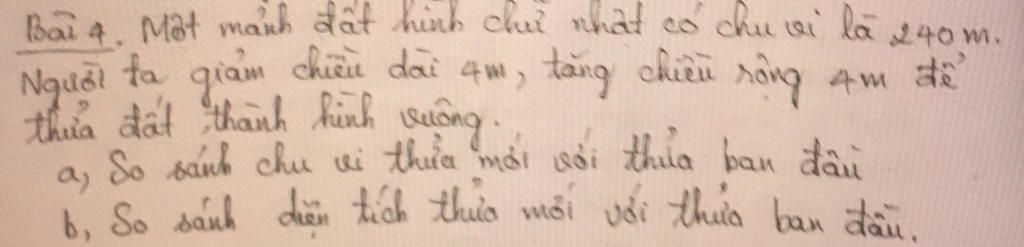 Bài 4. Một mảnh đất hình chữ nhật có chu vi là 240m.
Người ta giảm chiều dài 4m, tăng chiều rộng 4m để
thửa đất thành hình vuông.
a, So sánh chu vi thửa mới với thửa ban đầu
b, So sánh diện tích thửa mới với thửa ban đầu.